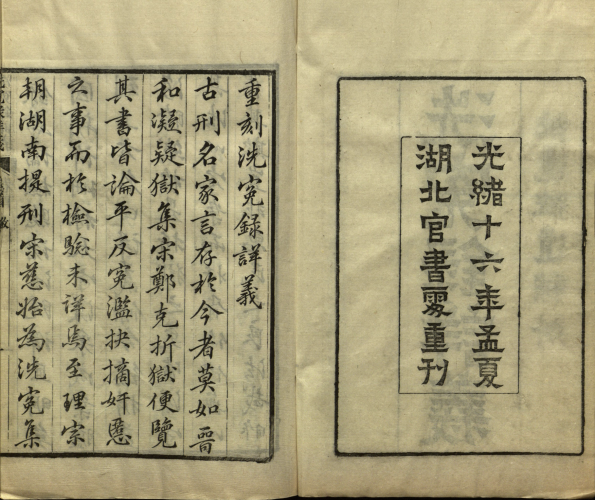 光緒十六年孟夏
湖北官書處重刊
重刻洗冤録詳義
古刑名家言存於今者莫如晉
和凝疑獄集宋鄭克折獄便覽
其書皆論平反冤濫抉摘奸慝
之事而於檢驗未詳焉至理宗
朝湖南提刑宋慈始為洗冤集